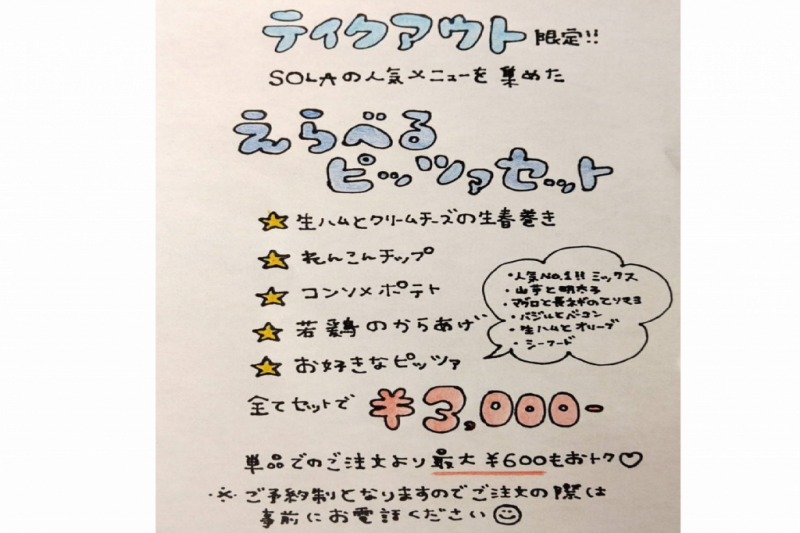 テイクアウト 限定!!
SOLAの人気メニューを集めた
えらべる
ピッツァセット
★ 生ハムとクリームチーズの生春巻き
★ れんこんチップ
★ コンソメポテト
★ 若鶏のからあげ
★ お好きなピッツァ
・人気NO.1!! ミックス
・山芋と明太子
・マグロと長ネギのとりマヨ
・バジルとベーコン
・生ハムとオリーブ
・シーフード
全てセットで ¥3,000-
単品でのご注文より 最大 ¥600もおトク♡
※ ご予約制となりますのでご注文の際は
事前にお電話ください☺